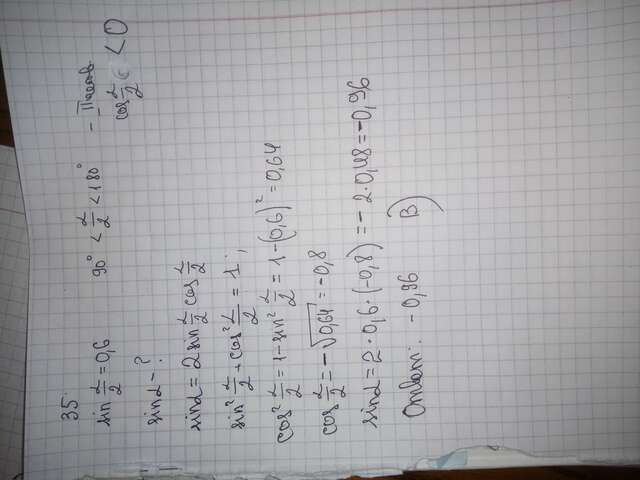 35
sin α/2 = 0,6 90° < α/2 < 180° - II четв.
sin α - ? cos α/2 < 0
sin α = 2 sin α/2 cos α/2
sin² α/2 + cos² α/2 = 1;
cos² α/2 = 1 - sin² α/2 = 1 - (0,6)² = 0,64
cos α/2 = -√0,64 = -0,8
sin α = 2·0,6·(-0,8) = -2·0,48 = -0,96
Ответ: -0,96 В)